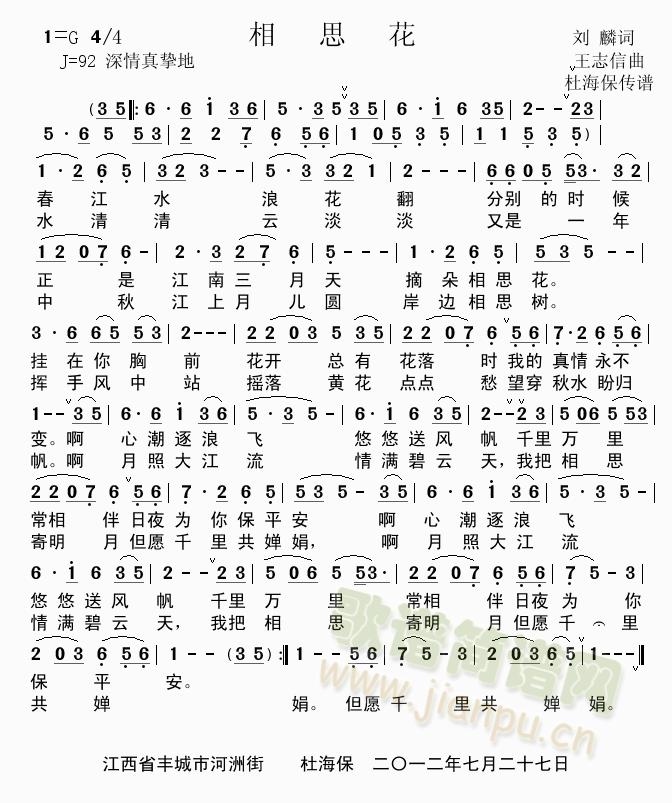 1=G 4/4 相 思 花 刘 麟词
J=92 深情真挚地 王志信曲
杜海保传谱
(3 5‖:6·6 i 3 6|5·3 5 3 5|6·i 6 6 3 5|2--2 3
5·6 5 5 3|2 2 7 6 5 6|1 0 5 3 5|1 1 5 3 5)|
1·2 6 5|3 2 3--|5·3 3 2 1|2---|6 6 0 5 5 3·3 2|
春 江 水 浪 花 翻 分别 的 时 候
水 清 清 云 淡 淡 又是 一 年
1 2 0 7 6-|2·3 2 7 6|5---|1·2 6 5|5 3 5--|
正 是 江 南 三 月 天 摘 朵 相 思 花。
中 秋 江 上 月 儿 圆 岸 边 相 思 树。
3·6 6 5 5 3|2---|2 2 0 3 5 3 5|2 2 0 7 6 5 6|7·2 6 5 6|
挂 在 你 胸 前 花开 总 有 花落 时 我的 真情 永不
挥 手 风 中 站 摇落 黄 花 点点 愁 望穿 秋水 盼归
1--3 5|6·6 i 3 6|5·3 5-|6·i 6 3 5|2--2 3|5 0 6 5 5 3|
变。啊 心 潮 逐 浪 飞 悠 悠 送 风 帆 千里 万 里
帆。啊 月 照 大 江 流 情 满 碧 云 天,我把 相 思
2 2 0 7 6 5 6|7·2 6 5|5 3 5-|5--3 5|6·6 i 3 6|5·3 5-|
常相 伴 日夜 为 你 保 平 安 啊 心 潮 逐 浪 飞
寄明 月 但愿 千 里 共 婵 娟, 啊 月 照 大 江 流
6·i 6 3 5|2--2 3|5 0 6 5 5 3·|2 2 0 7 6 5 6|7 5-3|
悠 悠 送 风 帆 千里 万 里 常相 伴 日夜 为 你
情 满 碧 云 天,我把 相 思 寄明 月 但愿 千 里
2 0 3 6 5 6|1--(3 5):‖1--5 6|7 5--|2 0 3 6 5|1---‖
保 平 安。
共 婵 娟。 但愿 千 里 共 婵 娟。
歌谱简谱网
www.jianpu.cn
江西省丰城市河洲街 杜海保 二〇一二年七月二十七日